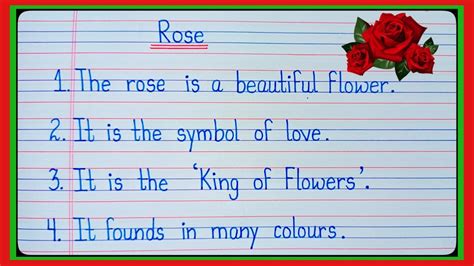 Rose
1. The rose is a beautiful flower.
2. It is the symbol of love.
3. It is the 'King of Flowers'.
4. It founds in many colours.